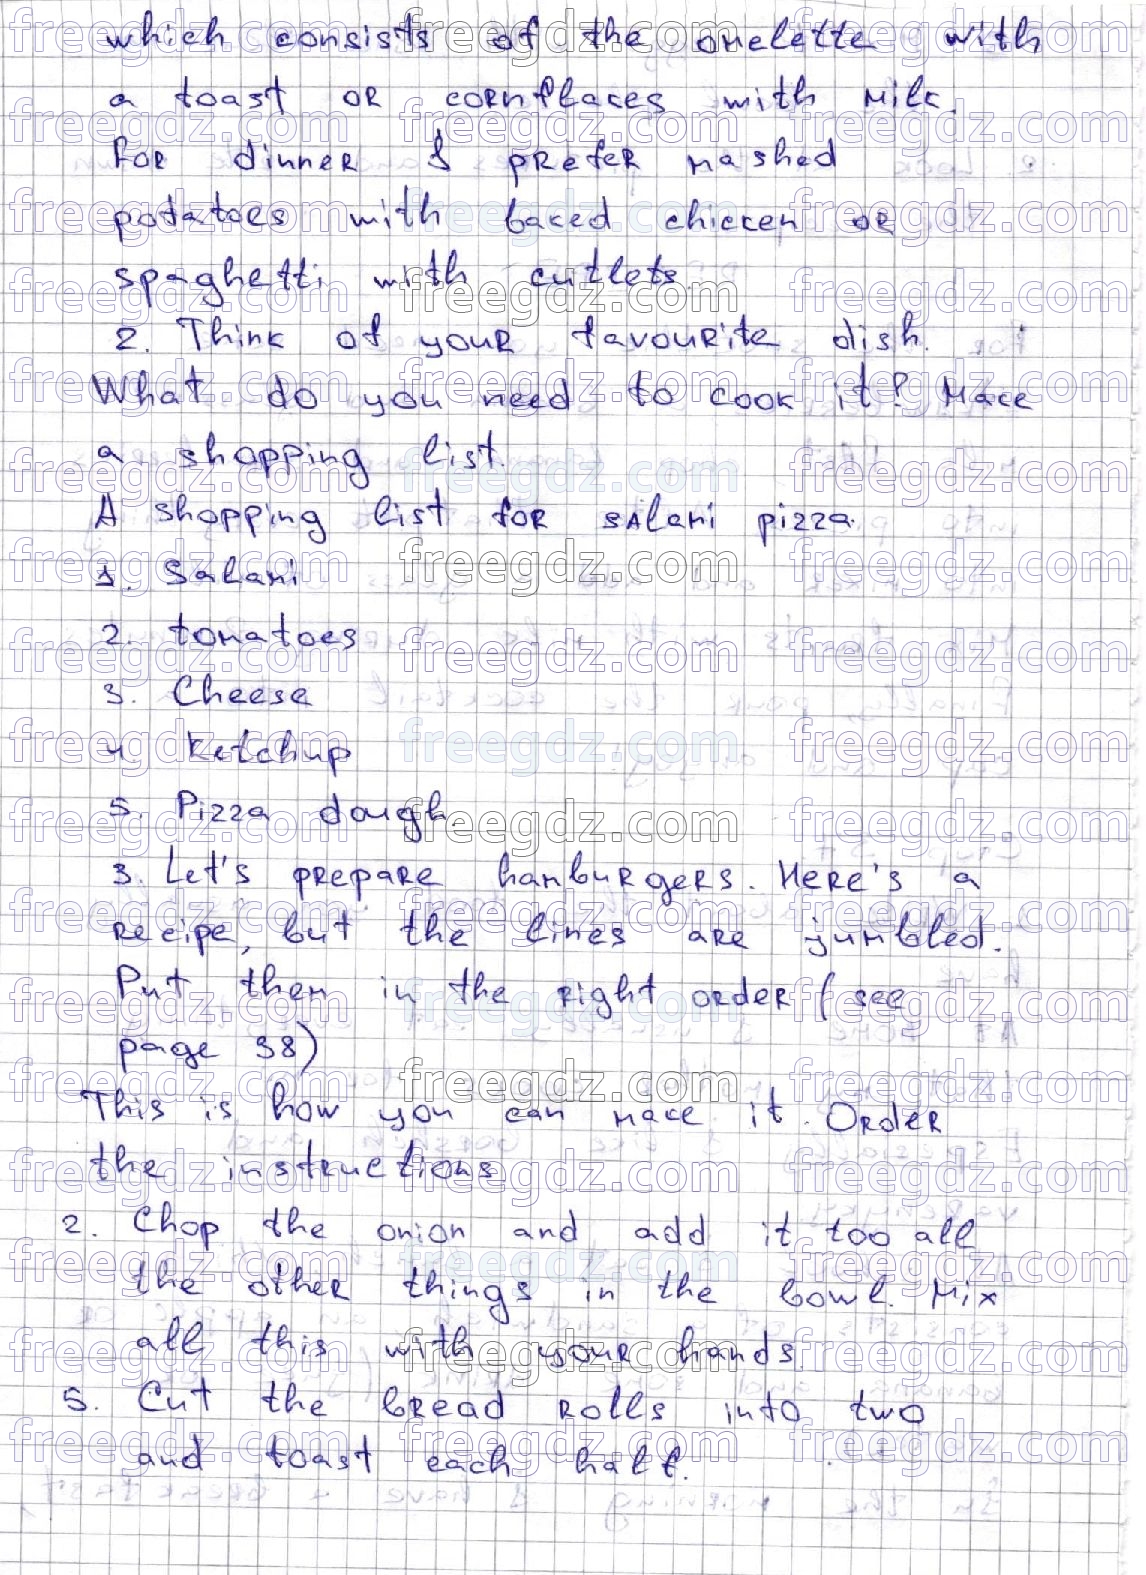 which consists of the omelette with
a toast or cornflaces with milc.
For dinner I prefer mashed
potatoes with baced chiccen or
spaghetti with cutlets.
2. Think of your favourite dish.
What do you need to cook it? Mace
a shopping list.
A shopping list for salami pizza.
1. Salami
2. tomatoes
3. Cheese
4 Ketchup
5. Pizza dough.
3. Let's prepare hamburgers. Here's a
recipe, but the lines are jumbled.
Put them in the right order (see
page 38)
This is how you can mace it. Order
the instructions
2. Chop the onion and add it too all
the other things in the bowl. Mix
all this with your hands.
5. Cut the bread rolls into two
and toast each half.
freegdz.com